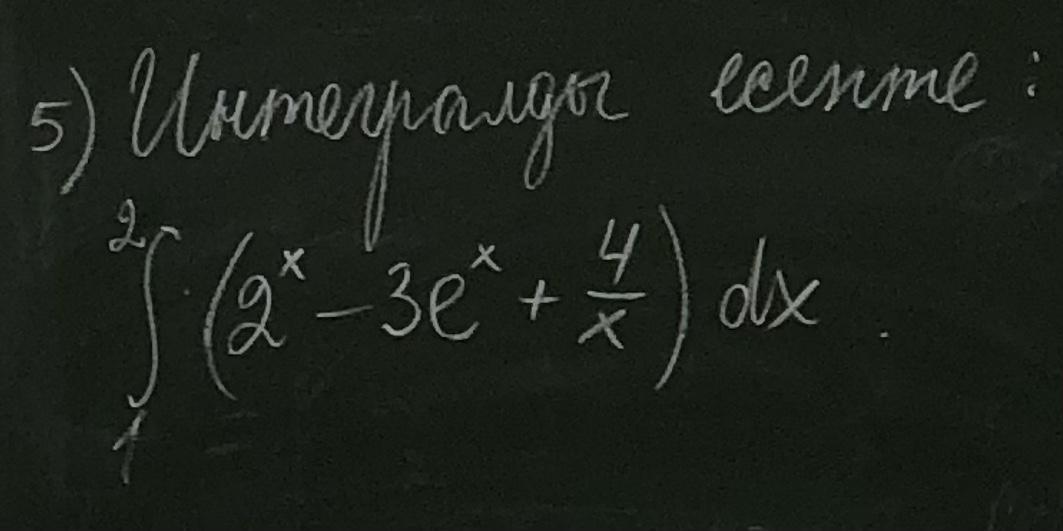 5) Интегралды есепте:
∫₁² (2ˣ − 3eˣ + 4/x) dx.